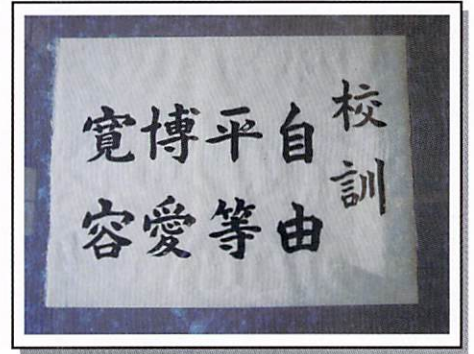 校訓
自由
平等
博愛
寛容